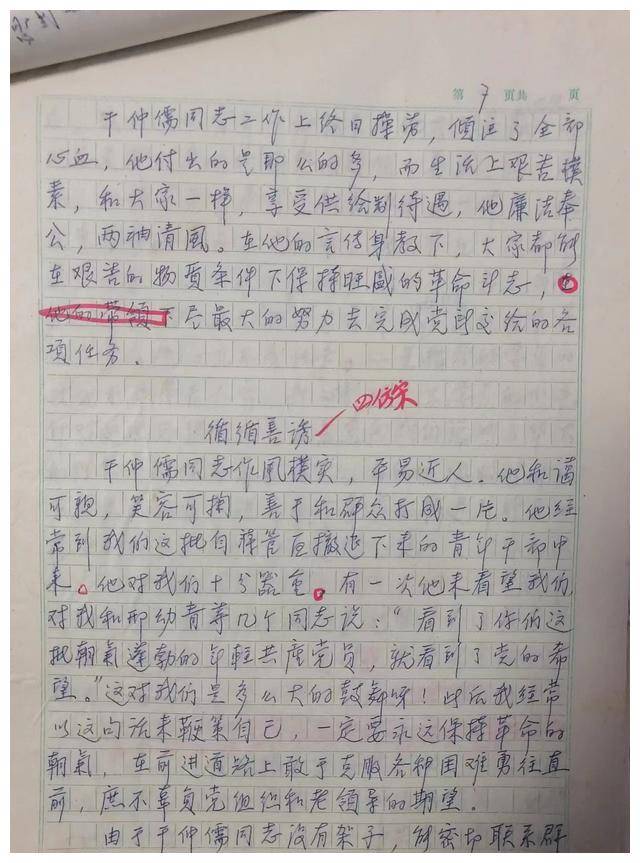 第 7 页共 页
于仲儒同志工作上终日操劳，倾注了全部
心血，他付出的是那么的多，而生活上艰苦樸
素，和大家一样，享受供给制待遇，他廉洁奉
公，两袖清風。在他的言传身教下，大家都能
在艰苦的物质条件下保持旺盛的革命斗志，在
他的带領下尽最大的努力去完成党所交给的各
项任务。
四仿宋
循循善诱
于仲儒同志作風樸实，平易近人。他和蔼
可親，笑容可掬，善于和群众打成一片。他经
常到我们这批自蒋管区撤退下来的青年干部中
来。他对我们十分器重。有一次他来看望我们，
对我和邢幼青等几个同志说：“看到了你们这
批朝氣蓬勃的年輕共產党员，就看到了党的希
望。”这对我们是多么大的鼓舞呀！此后我经常
以这句话来鞭策自己，一定要永远保持革命的
朝氣，在前进道路上敢于克服各种困难勇往直
前，庶不辜負党组织和老领导的期望。
由于于仲儒同志没有架子，能密切联系群